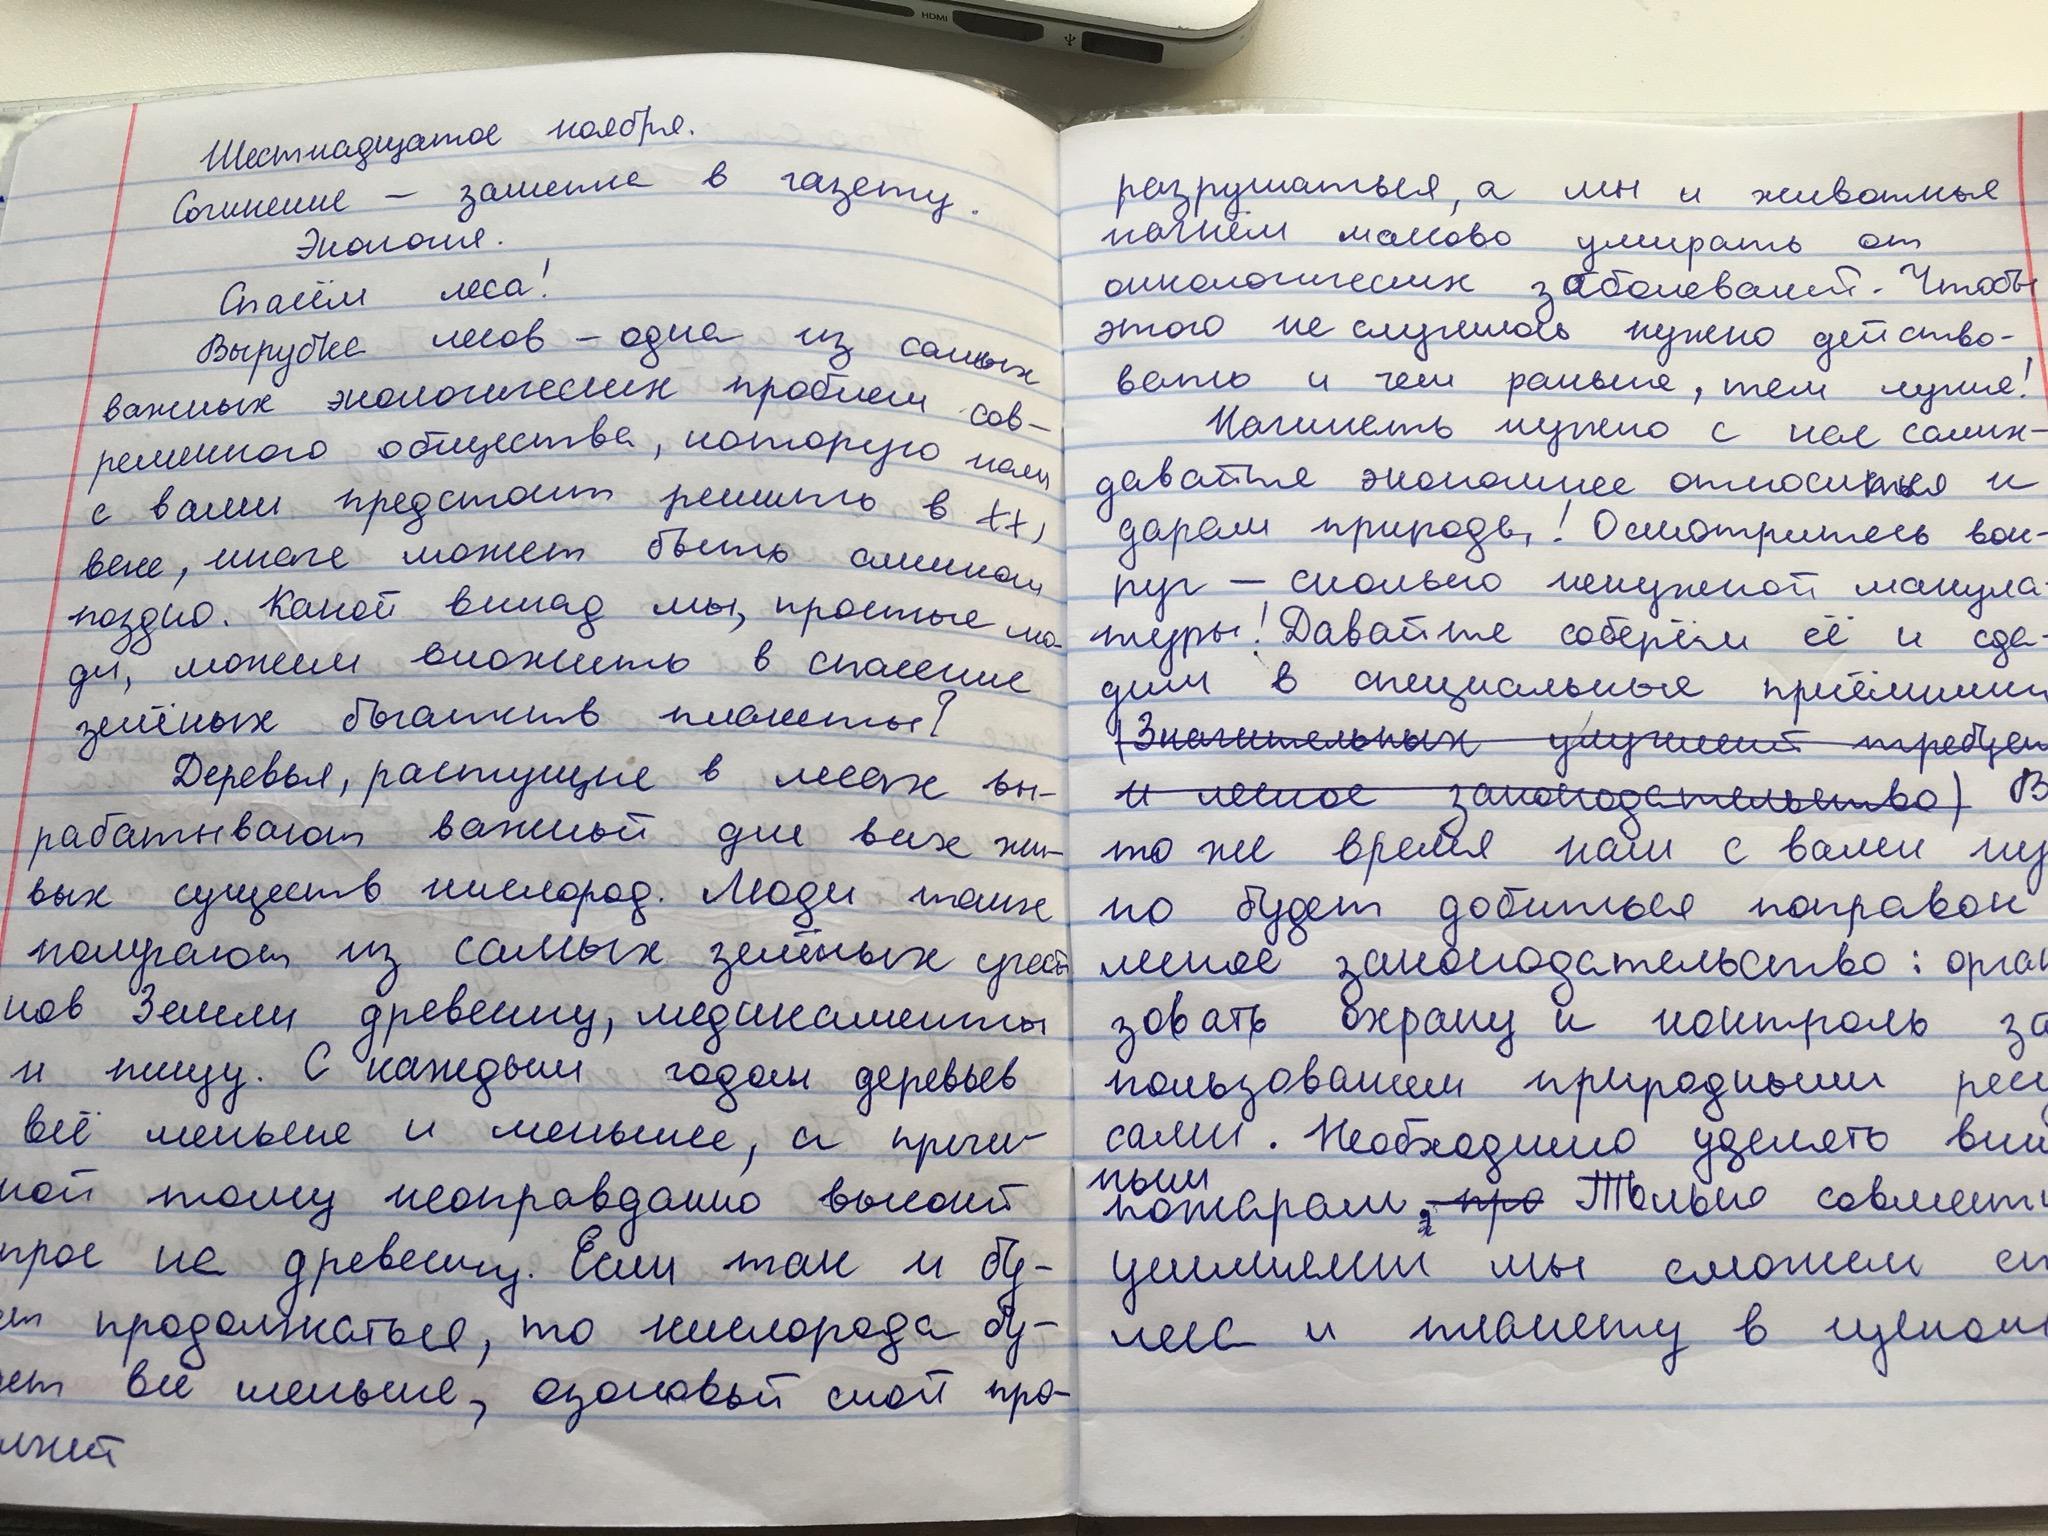 HDMI
Шестнадцатое ноября.
Сочинение – заметка в газету.
Экология.
Спасём леса!
Вырубка лесов – одна из самых
важных экологических проблем сов-
ременного общества, которую нам
с вами предстоит решить в
веке, иначе может быть слишком
поздно. Какой вклад мы, простые лю-
ди, можем вложить в спасение
зелёных богатств планеты?
Деревья, растущие в лесах вы-
рабатывают важный для всех жи-
вых существ кислород. Люди также
получают из самых зелёных
нов Земли древесину, медикаменты
и пищу. С каждым годом деревьев
всё меньше и меньшее, а причи-
ной тому неоправданно высокий
прос на древесину. Если так и бу-
ет продолжаться, то кислорода бу-
ет всё меньше, озоновый слой про-
лжит
разрушаться, а мы и животные
начнём массово умирать от
онкологических заболеваний. Чтобы
этого не случилось нужно действо-
вать и чем раньше, тем лучше!
Начинать нужно с нас самих-
давайте экономнее относиться к
дарам природы! Осмотритесь вок-
руг – сколько ненужной макула-
туры! Давайте соберём её и сда-
дим в специальные приёмники
(Значительных улучшений требует
и лесное законодательство) В
то же время нам с вами ну
но будет добиться поправок
лесное законодательство: орган
зовать охрану и контроль за
пользованием природными ресу
сами. Необходимо уделять вни
пожарам, про Только совместн
ными
усилиями мы сможем сп
леса и планету в целом